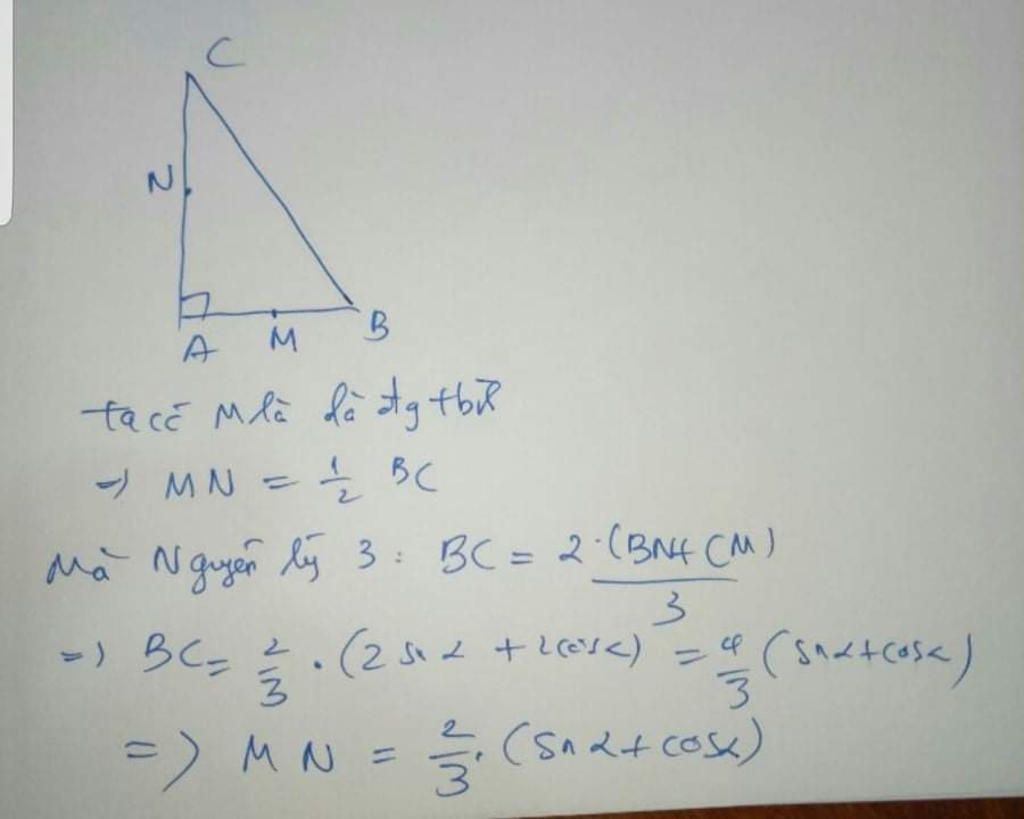 C
N
A M B
ta có M là
=> MN = 1/2 BC
Mà Nguyên lý 3: BC = 2.(BN+CM)/3
=> BC = 2/3 . (2 sin α + 2cosα) = 4/3 (sinα+cosα)
=> MN = 2/3 . (sin α + cosα)